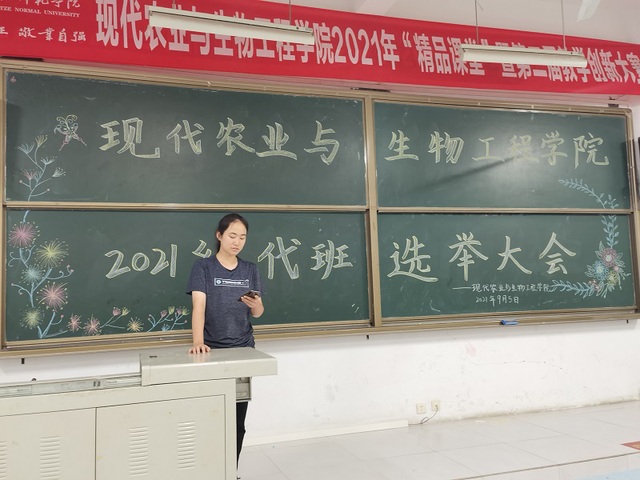 NORMAL UNIVERSITY
敬业自强
现代农业与生物工程学院2021年“精品课堂
教学创新大赛
现代农业与 生物工程学院
2021 代班 选举大会
——现代农业与生物工程学院
2021年9月5日